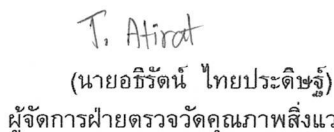 T. Atirat
(นายอธิรัตน์ ไทยประดิษฐ์)
ผู้จัดการฝ่ายตรวจวัดคุณภาพสิ่งแว